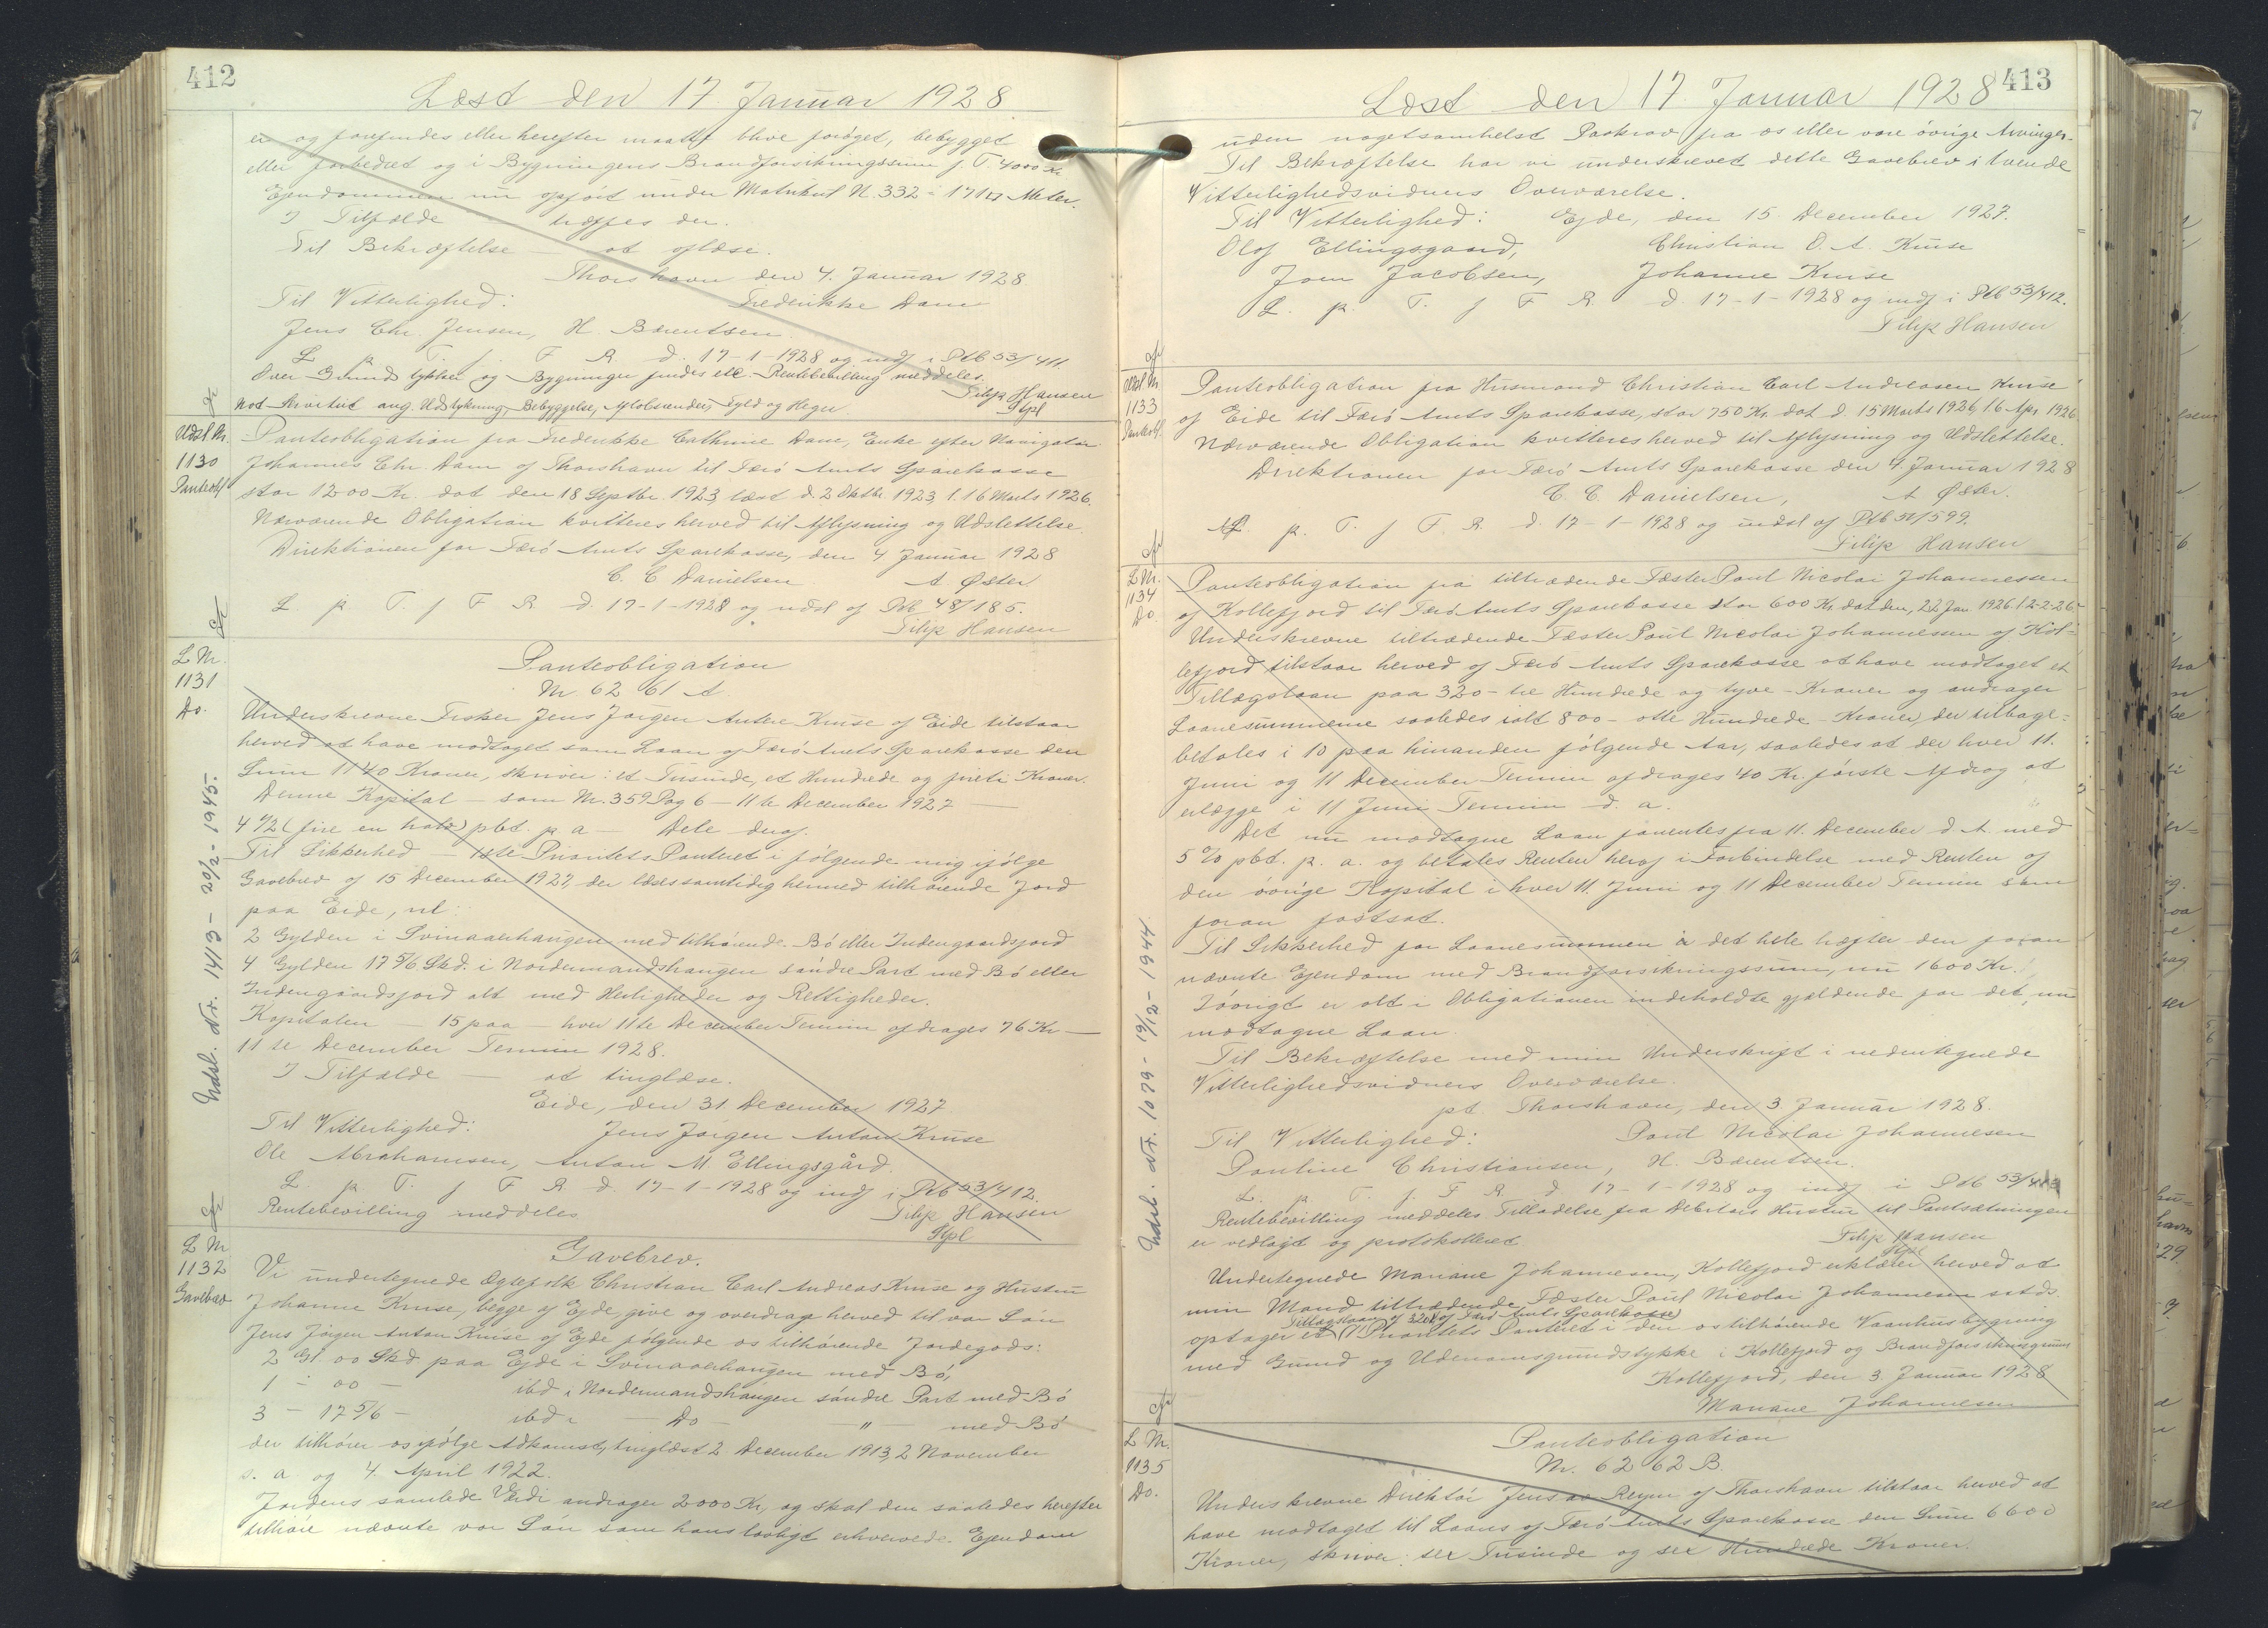 412
Læst den 17. Januar 1928
er og forefindes eller herefter maatte blive forøget, bebygget
eller forbedret og i Bygningens Brandforsikringssum f. T. 4000 Kr
Ejendommen nu opført under Matrikul N. 332 - 171 □ Meter.
I Tilfælde træffes der.
Til Bekræftelse - at aflæse.
Thorshavn den 4. Januar 1928
Til Vitterlighed: Frederikke Dam
Jens Chr. Jensen, H. Bærentsen
L. p. T. f. F. R. d. 17-1-1928 og indf i Ptb 53/411.
Over Grundstykker og Bygninger findes etc. Rentebevilling meddeles.
Filip Hansen
Not Servitut ang. Udstykning, Bebyggelse, Afløbsrender, Fyld og Hegn
Stpl
Udsl. Nr.
1130
Panteobl
Panteobligation fra Frederikke Cathrine Dam, Enke efter Navigatør
Johannes Chr. Dam af Thorshavn til Færö Amts Sparekasse
stor 1200 Kr. dat den 18 Septbr. 1923, læst d. 2 Oktbr. 1923, l. 16 Marts 1926.
Nærværende Obligation kvitteres herved til Aflysning og Udslettelse.
Direktionen for Færö Amts Sparekasse, den 4 Januar 1928
C. C. Danielsen A. Øster
L. p. T. f. F. R. d. 17-1-1928 og udsl af Ptb 48/185.
Filip Hansen
L Nr.
1131
Do.
Udsl. Nr. 1413 - 20/2 - 1945.
Panteobligation
Nr. 62 61 A.
Underskrevne Fisker Jens Jørgen Anton Kruse af Eide tilstaar
herved at have modtaget som Laan af Færö Amts Sparekasse den
Sum 1140 Kroner, skriver: et Tusinde, et Hundrede og firti Kroner.
Denne Kapital - som Nr. 359 Pag 6 - 11te December 1927 -
4 1/2 (fire en halv) pCt. p. a - Dele deraf.
Til Sikkerhed - 1ste Prioritets Panteret i følgende mig ifølge
Gavebrev af 15 December 1927, der læses samtidig hermed tilhørende Jord
paa Eide, nl:
2 Gylden i Svinaaerhaugen med tilhørende Bö eller Indengaardsjord
4 Gylden 17 5/6 Skd. i Nordenmandshaugen søndre Part med Bö eller
Indengaardsjord alt med Herligheder og Rettigheder.
Kapitalen - 15 paa - hver 11te December Termin afdrages 76 Kr -
11te December Termin 1928.
I Tilfælde - at tinglæse.
Eide, den 31. December 1927
Til Vitterlighed: Jens Jørgen Anton Kruse
Ole Abrahamsen, Anton M Ellingsgård.
L. p. T. f F R. d. 17-1-1928 og indf i Ptb 53/412.
Rentebevilling meddeles Filip Hansen
Stpl
L Nr
1132
Gavebrev
Gavebrev.
Vi undertegnede Ægtefolk Christian Carl Andreas Kruse og Hustru
Johanne Kruse, begge af Ejde, give og overdrage herved til vor Søn
Jens Jörgen Anton Kruse af Ejde følgende os tilhørende Jordegods:
2 Gl. 00 Skd. paa Ejde i Svinaaerhaugen med Bö,
1 - 00 - ibd i Nordenmandshaugen søndre Part med Bö
3 - 17 5/6 - ibd i - Do - - " - med Bö
der tilhører os ifølge Adkomst, tinglæst 2 December 1913, 2 November
s. a. og 4. April 1922.
Jordens samlede Værdi andrager 2000 Kr, og skal den saaledes herefter
tilhøre nævnte vor Søn som hans lovligt erhvervede Ejendom
413
Læst den 17. Januar 1928
uden nogetsomhelst Paakrav fra os eller vore övrige Arvinger.
Til Bekræftelse har vi underskrevet dette Gavebrev i tvende
Vitterlighedsvidners Overværelse.
Til Vitterlighed: Ejde, den 15. December 1927.
Olof Ellingsgaard, Christian C. A. Kruse
Joen Jacobsen, Johanne Kruse
L. p. T. f F R. d. 17-1-1928 og indf i Ptb 53/412.
Filip Hansen
Udsl Nr
1133
Panteobl.
Panteobligation fra Husmand Christian Carl Andreasen Kruse
af Eide til Færö Amts Sparekasse, stor 750 Kr. dat d. 15 Marts 1926, l. 6 Apr. 1926.
Nærværende Obligation kvitteres herved til Aflysning og Udslettelse.
Direktionen for Færö Amts Sparekasse den 4. Januar 1928
C. C. Danielsen, A Øster.
L. p. T. f F. R. d. 17-1-1928 og udsl af Ptb 51/599.
Filip Hansen
L Nr.
1134
Do
Udsl. Nr. 1079 - 19/12 - 1944.
Panteobligation fra tiltrædende Fæster Poul Nicolai Johannessen
af Kollefjord til Færö Amts Sparekasse stor 600 Kr dat den, 22 Jan. 1926 l. 2-2-26.
Underskrevne tiltrædende Fæster Poul Nicolai Johannesen af Kol-
lefjord tilstaar herved af Færö Amts Sparekasse at have modtaget et
Tillægslaan paa 320 - tre Hundrede og tyve - Kroner og andrager
Laanesummerne saaledes ialt 800 - otte Hundrede - Kroner, der tilbage-
betales i 10 paa hinanden følgende Aar, saaledes at der hver 11.
Juni og 11 December Termin afdrages 40 Kr. første Afdrag at
erlægge i 11 Juni Termin d. a.
Det nu modtagne Laan forrentes fra 11. December d. A. med
5 % pCt. p. a. og betales Renten heraf i Forbindelse med Renten af
den övrige Kapital i hver 11. Juni og 11 December Termin som
foran fastsat.
Til Sikkerhed for Laanesummen i det hele hæfter den foran
nævnte Ejendom med Brandforsikringssum, nu 1600 Kr.
Iövrigt er alt i Obligationen indeholdte gjældende for det nu
modtagne Laan.
Til Bekræftelse med min Underskrift i nedentegnede
Vitterlighedsvidners Overværelse.
pt. Thorshavn, den 3 Januar 1928.
Til Vitterlighed: Poul Nicolai Johannesen
Pauline Christiansen, H. Bærentsen.
L. p. T. f. F R. d 17-1-1928 og indf i Ptb 53/413
Rentebevilling meddeles. Tilladelse fra Debitors Hustru til Pantsætningen
er vedlagt og protokolleret Filip Hansen
Stpl
Undertegnede Mariane Johannesen, Kollefjord erklærer herved at
min Mand tiltrædende Fæster Poul Nicolai Johannesen sstds.
Tillægslaan af 320 Kr af Færö Amts Sparekasse
optager et 1 Prioritets Panteret i den os tilhørende Vaanhusbygning
med Grund og Udenomsgrundstykke i Kollefjord og Brandforsikringssum
Kollefjord, den 3. Januar 1928
Mariane Johannesen
L Nr.
1135
Do.
Panteobligation
Nr. 62 62 B.
Underskrevne Direktör Jens av Reyni af Thorshavn tilstaar herved at
have modtaget til Laans af Færö Amts Sparekasse den Sum 6600
Kroner, skriver: sex Tusinde og sex Hundrede Kroner.